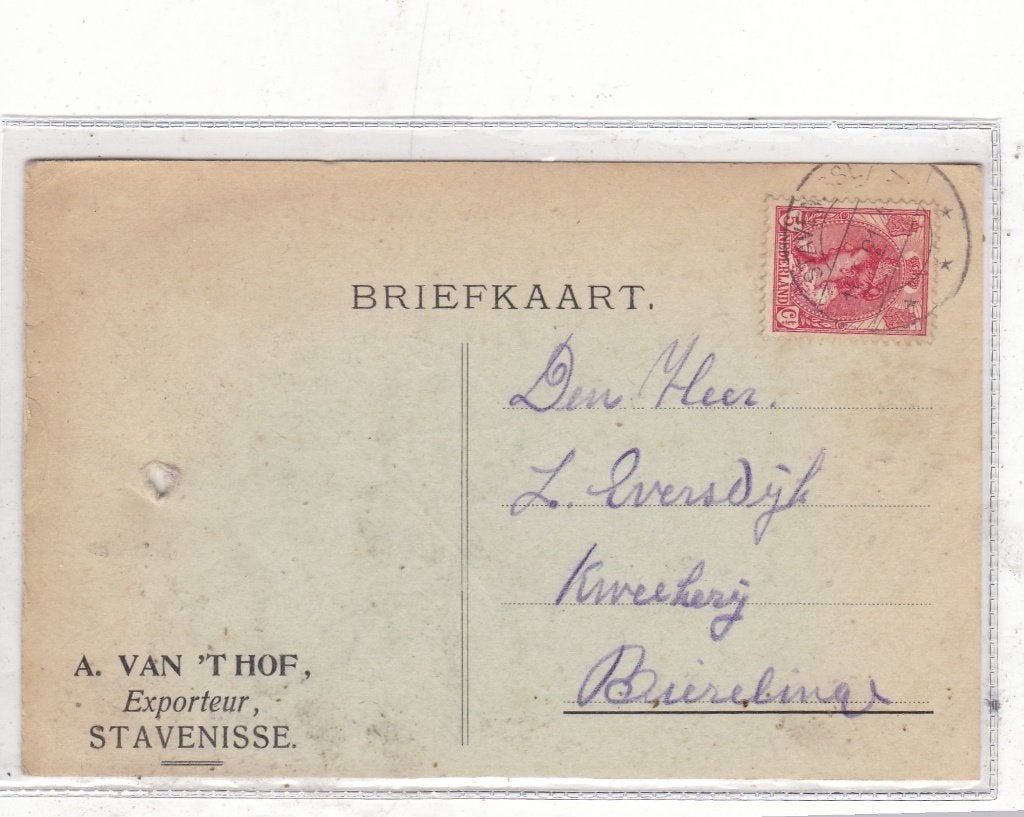 BRIEFKAART.
5 NEDERLAND Ct
STAVENISSE
Den Heer.
L. Eversdijk
Kweekerij
Biezelinge
A. VAN 'T HOF,
Exporteur,
STAVENISSE.